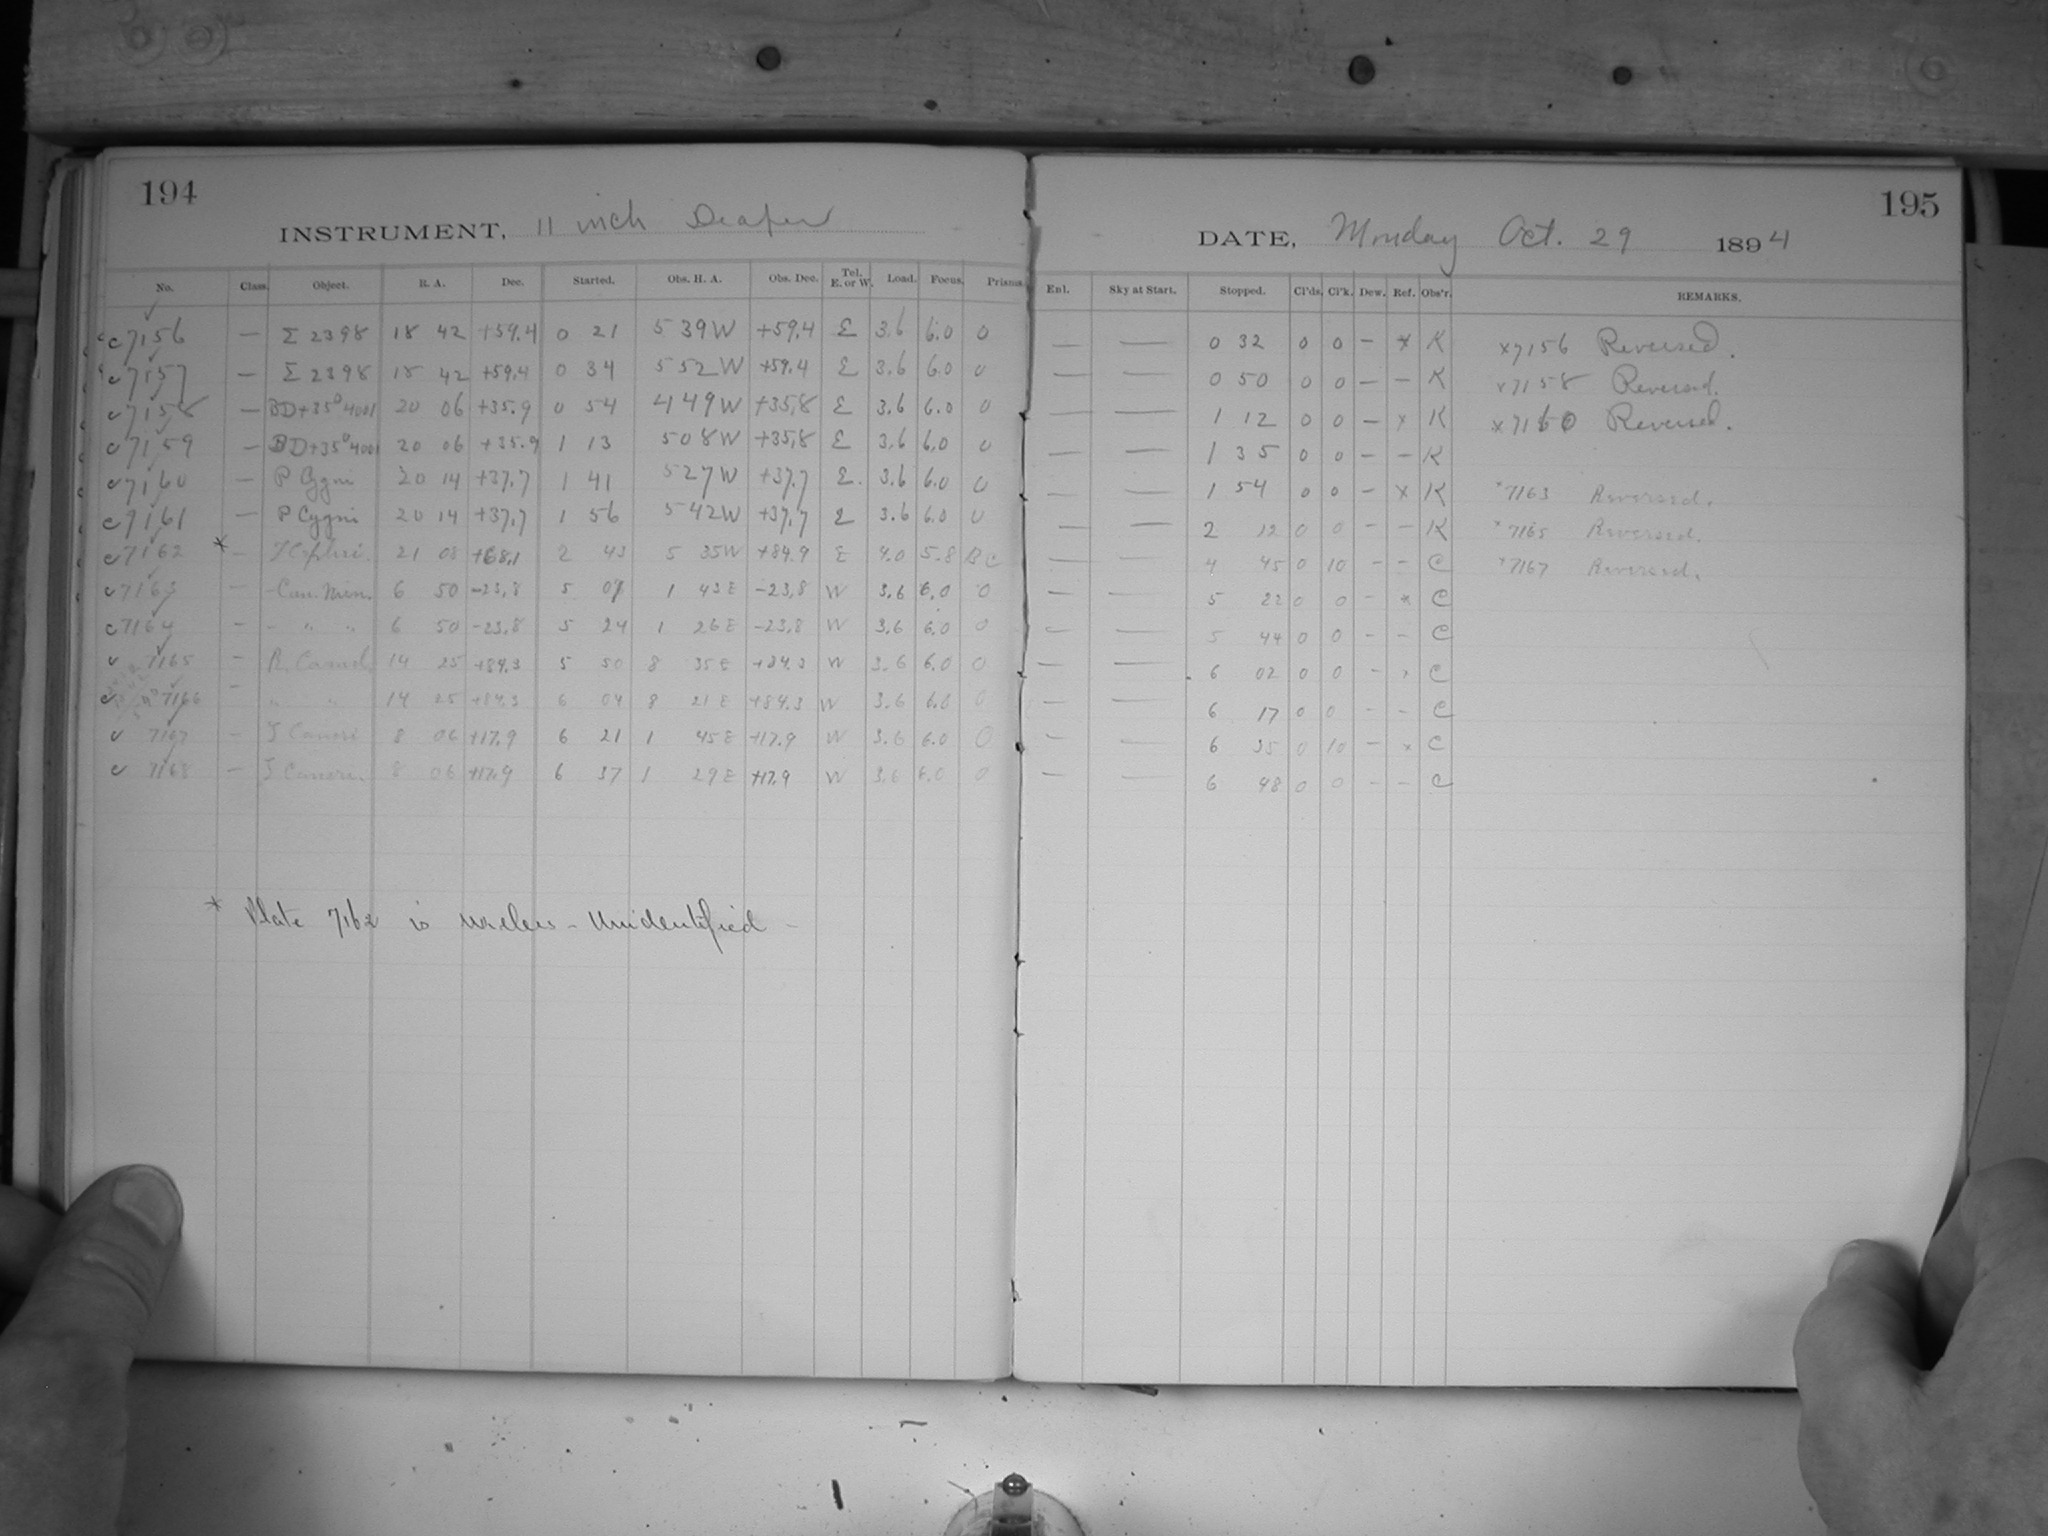 194
INSTRUMENT, 11 inch Draper
No. Class. Object. R. A. Dec. Started. Obs. H. A. Obs. Dec. Tel. E. or W. Load. Focus. Prisms.
c 7156 — Σ 2398 18 42 +59.4 0 21 5 39 W +59.4 E 3.6 6.0 0
c 7157 — Σ 2398 18 42 +59.4 0 34 5 52 W +59.4 E 3.6 6.0 0
c 7158 — BD+35°4001 20 06 +35.9 0 54 4 49 W +35.8 E 3.6 6.0 0
c 7159 — BD+35°4001 20 06 +35.9 1 13 5 08 W +35.8 E 3.6 6.0 0
c 7160 — P Cygni 20 14 +37.7 1 41 5 27 W +37.7 E. 3.6 6.0 0
c 7161 — P Cygni 20 14 +37.7 1 56 5 42 W +37.7 E 3.6 6.0 0
c 7162 * — T Cephei. 21 08 +68.1 2 43 5 35 W +84.9 E 4.0 5.8 BC
c 7163 — Can. Min. 6 50 -23.8 5 07 1 43 E -23.8 W 3.6 6.0 0
c 7164 — - " " 6 50 -23.8 5 24 1 26 E -23.8 W 3.6 6.0 0
c 7165 — R. Camel. 14 25 +84.3 5 50 8 35 E +84.3 W 3.6 6.0 0
c 7166 — " " 14 25 +84.3 6 04 8 21 E +84.3 W 3.6 6.0 0
c 7167 — ζ Cancri 8 06 +17.9 6 21 1 45 E +17.9 W 3.6 6.0 0
c 7168 — ζ Cancri. 8 06 +17.9 6 37 1 29 E +17.9 W 3.6 6.0 0
* Plate 7162 is useless - Unidentified -
195
DATE, Monday Oct. 29 1894
Enl. Sky at Start. Stopped. Cl'ds. Cl'k. Dew. Ref. Obs'r. REMARKS.
— — 0 32 0 0 — x K x7156 Reversed.
— — 0 50 0 0 — — K x7158 Reversed.
— — 1 12 0 0 — x K x7160 Reversed.
— — 1 35 0 0 — — K
— — 1 54 0 0 — x K x7163 Reversed.
— — 2 12 0 0 — — K x7165 Reversed.
— — 4 45 0 10 — — C x7167 Reversed.
— — 5 22 0 0 — x C
— — 5 44 0 0 — — C
— — 6 02 0 0 — x C
— — 6 17 0 0 — — C
— — 6 35 0 10 — x C
— — 6 48 0 0 — — C